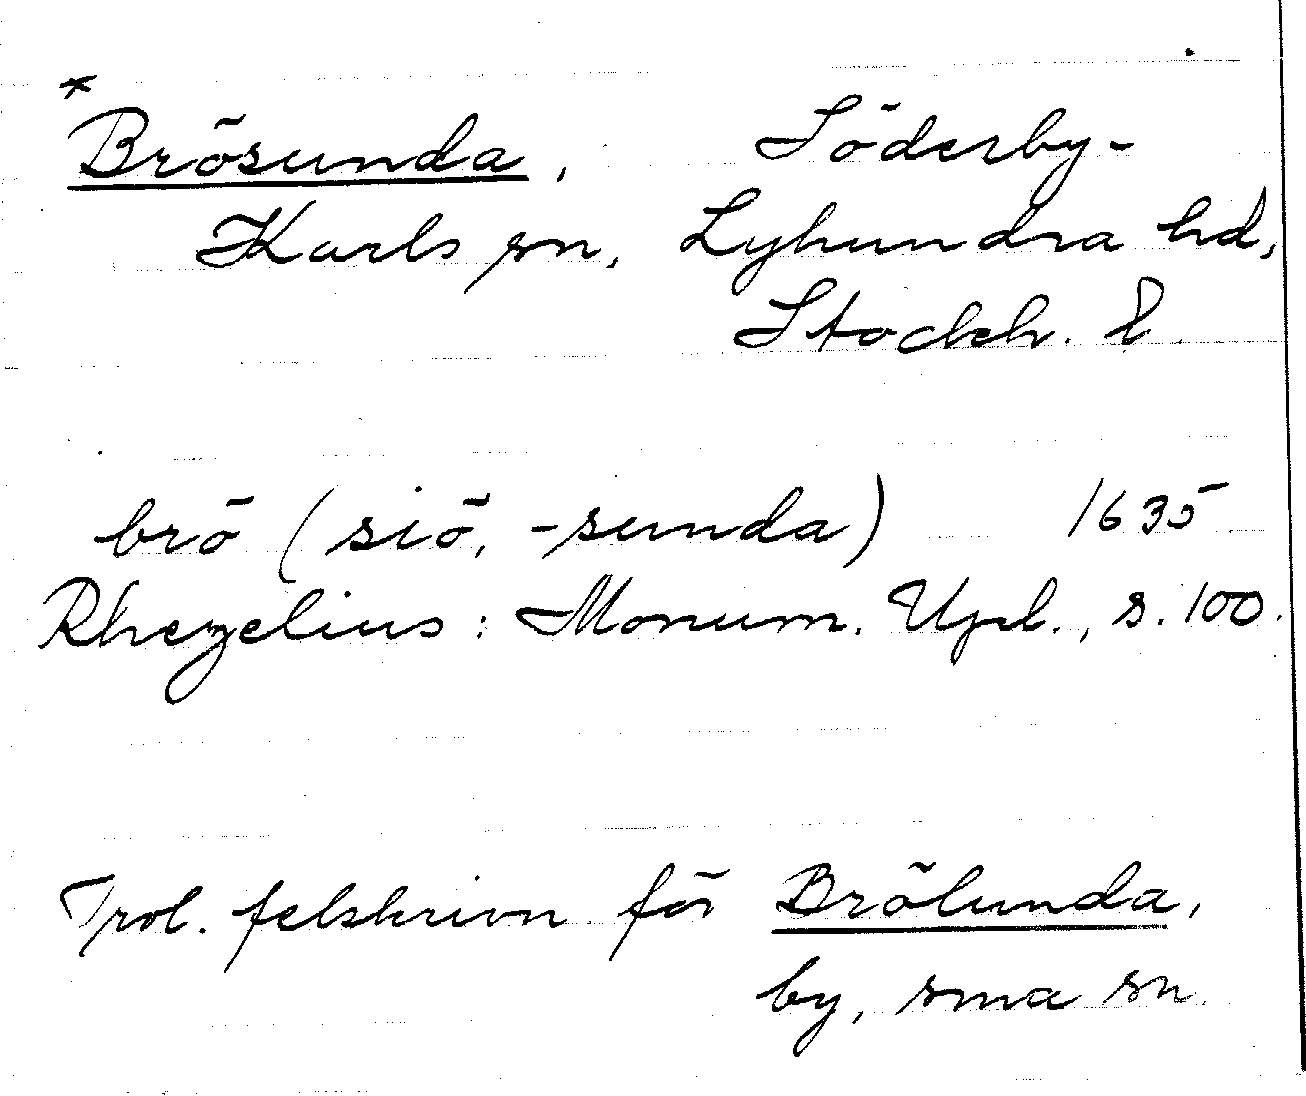 *
Brösunda, Söderby-
Karls sn, Lyhundra hd,
Stockh. l.
brö (siö, -sunda) 1635
Rhezelius: Monum. Upl., s. 100.
Trol. felskrivn för Brölunda,
by, sma sn